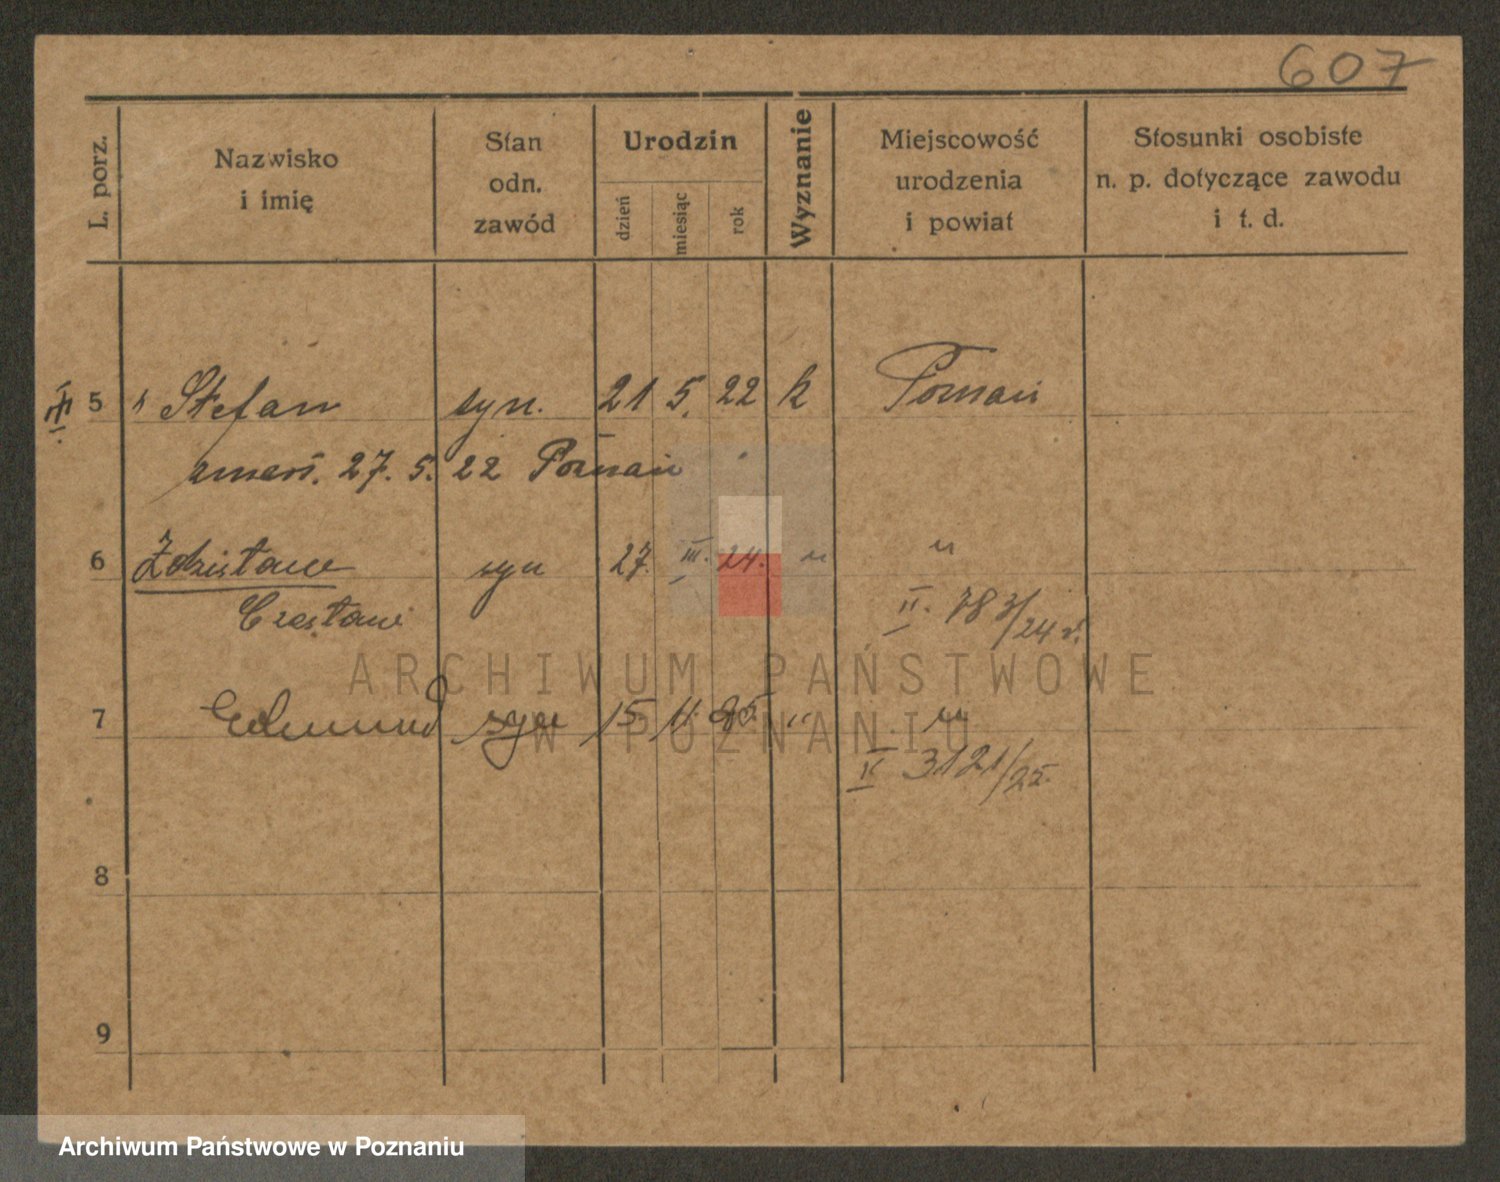 607
L. porz.
Nazwisko
i imię
Stan
odn.
zawód
Urodzin
dzień
miesiąc
rok
Wyznanie
Miejscowość
urodzenia
i powiat
Stosunki osobiste
n. p. dotyczące zawodu
i t. d.
5 Stefan syn. 21 5. 22 k Poznań
zmarł. 27. 5. 22 Poznań
6 Zdzisław syn 27. III. 24. " "
Czesław II. 783/24 r.
7 Edmund syn 15 11 25. " "
II 3121/25.
8
9
ARCHIWUM PAŃSTWOWE
W POZNANIU
Archiwum Państwowe w Poznaniu